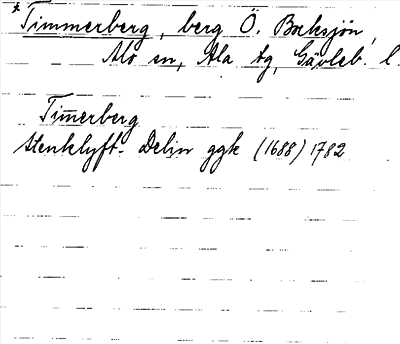 *Timmerberg, berg Ö. Bocksjön,
Mo sn, Ala tg, Gävleb. l.
Tim̅erberg
stenklyft. Delin ggk (1688) 1782